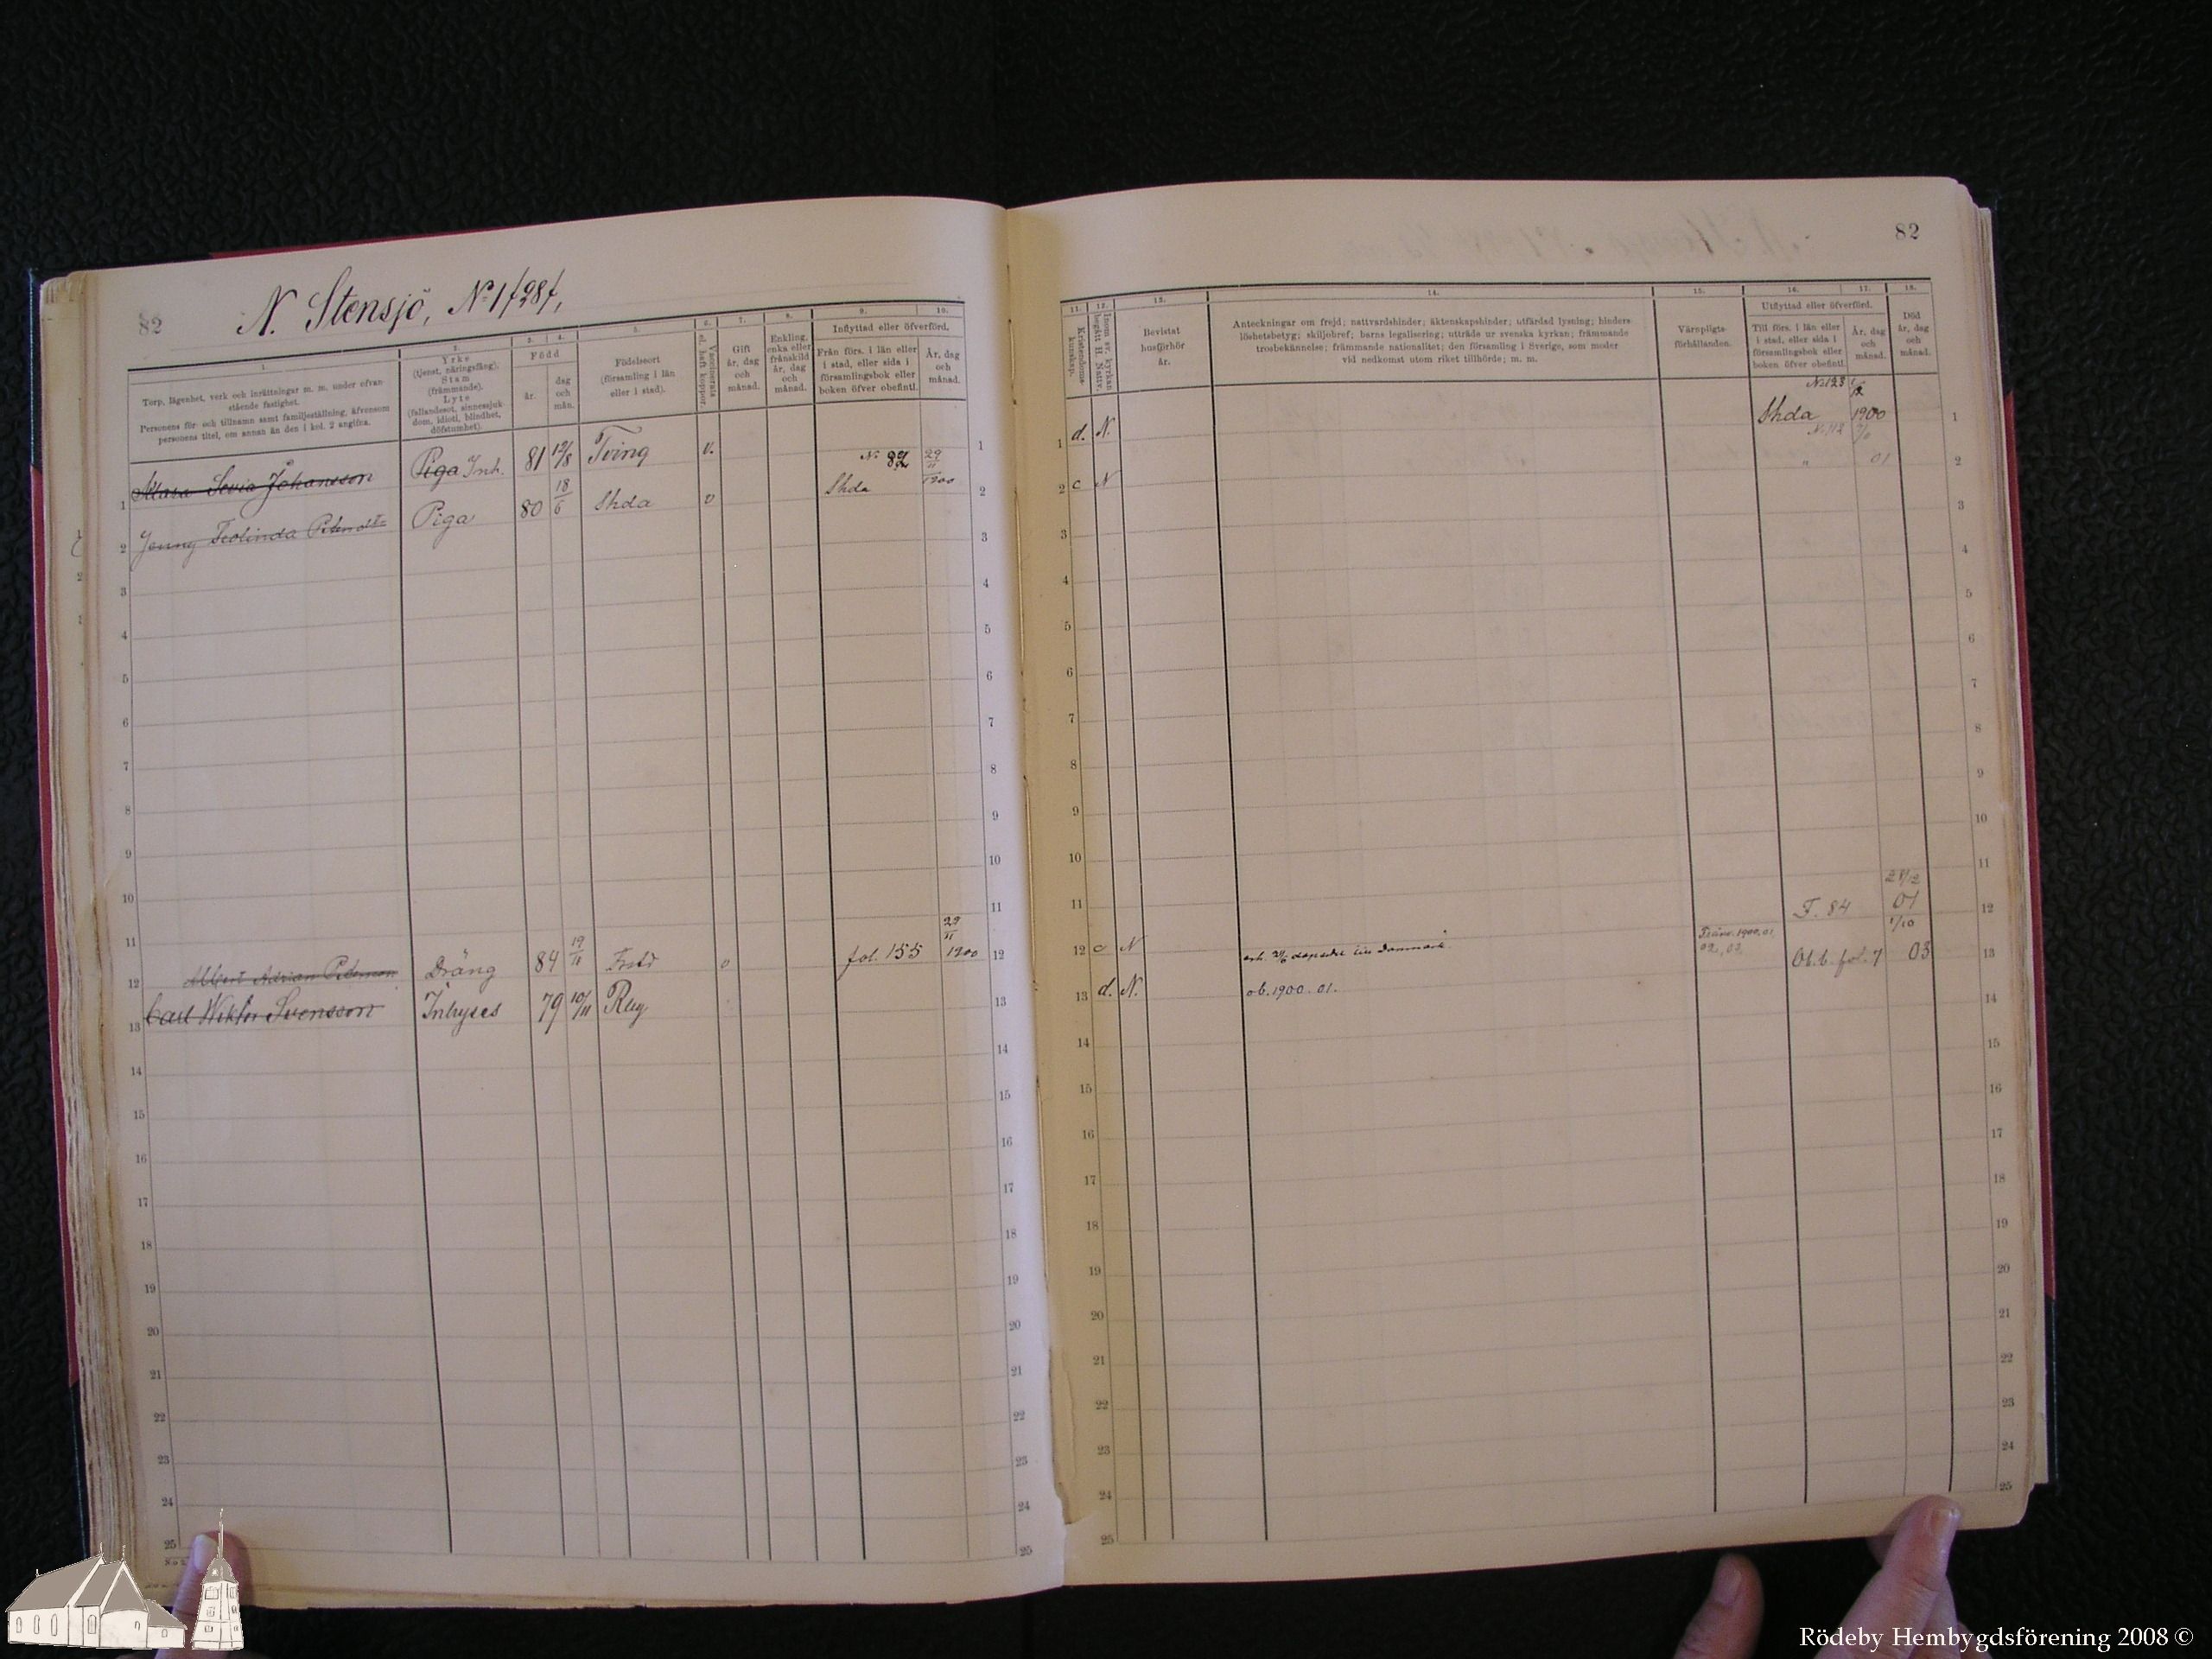 82
N. Stensjö, No 1/28/,
1.
Torp, lägenhet, verk och inrättningar m. m. under ofvan
stående fastighet.
Personens för- och tillnamn samt familjeställning, äfvensom
personens titel, om annan än den i kol. 2 angifna.
2.
Yrke
(tjenst, näringsfång).
Stam
(främmande).
Lyte
(fallandesot, sinnessjuk-
dom, idioti, blindhet,
döfstumhet).
3. 4.
Född
år.
dag
och
mån.
5.
Födelseort
(församling i län
eller i stad).
6.
Vaccinerats
el. haft koppor.
7.
Gift
år, dag
och
månad.
8.
Enkling,
enka eller
frånskild
år, dag
och
månad.
9. 10.
Inflyttad eller öfverförd.
Från förs. i län eller
i stad, eller sida i
församlingsbok eller
boken öfver obefintl.
År, dag
och
månad.
1 Johansson Piga Inh. 81 12/8 Tving v. 1
2 Jenny Teolinda Piga 80 18/6 Shda v No 82 Shda 29/11 1900 2
3 3
4 4
5 5
6 6
7 7
8 8
9 9
10 10
11 11
12 Albert Adrian Dräng 84 19/11 v fol. 155 29/11 1900 12
13 Carl Wiktor Svensson Inhyses 79 10/11 13
14 14
15 15
16 16
17 17
18 18
19 19
20 20
21 21
22 22
23 23
24 24
25 25
82
11.
Kristendoms-
kunskap.
12.
Inom sv. kyrkan
begått H. Nattv.
13.
Bevistat
husförhör
år.
14.
Anteckningar om frejd; nattvardshinder; äktenskapshinder; utfärdad lysning; hinders-
löshetsbetyg; skiljobref; barns legalisering; utträde ur svenska kyrkan; främmande
trosbekännelse; främmande nationalitet; den församling i Sverige, som moder
vid nedkomst utom riket tillhörde; m. m.
15.
Värnpligts-
förhållanden.
16. 17.
Utflyttad eller öfverförd.
Till förs. i län eller
i stad, eller sida i
församlingsbok eller
boken öfver obefintl.
År, dag
och
månad.
18.
Död
år, dag
och
månad.
1 d. N. No 123 Shda 1900 1
2 c N " 01 2
3 3
4 4
5 5
6 6
7 7
8 8
9 9
10 10
11 11
12 c N Danmark F. 84 28/12 01 12
13 d. N. ob. 1900. 01. Ob. b. fol. 7 1/10 03 13
14 14
15 15
16 16
17 17
18 18
19 19
20 20
21 21
22 22
23 23
24 24
25 25
Rödeby Hembygdsförening 2008 ©